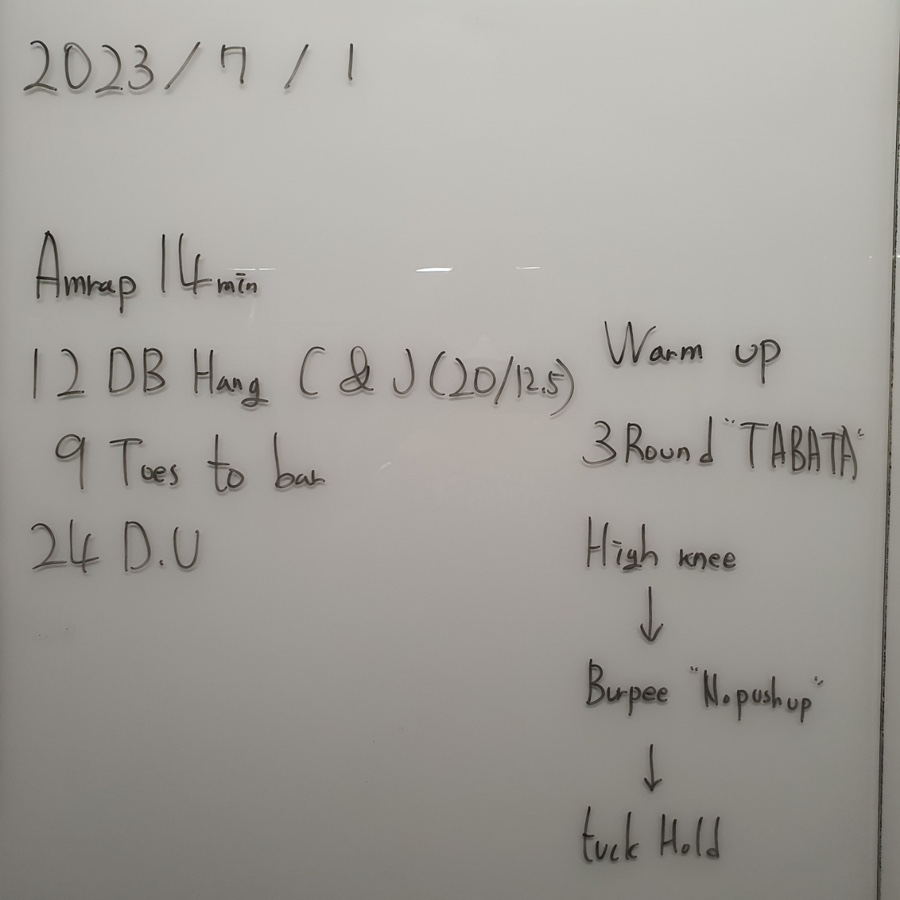 2023/7/1
Amrap 14min
12 DB Hang C & J (20/12.5)
9 Toes to bar
24 D.U
Warm up
3 Round "TABATA"
High knee
↓
Burpee "No pushup"
↓
tuck Hold